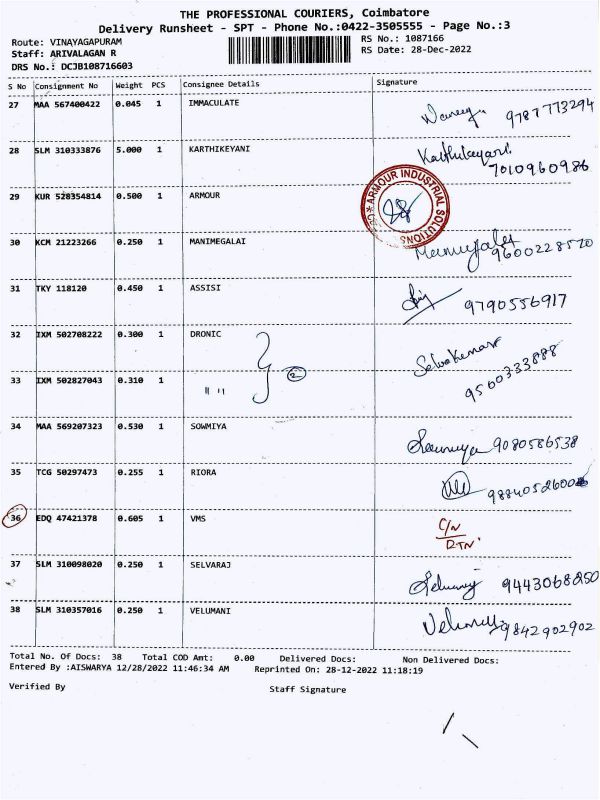 THE PROFESSIONAL COURIERS, Coimbatore
Delivery Runsheet - SPT - Phone No.:0422-3505555 - Page No.:3
Route: VINAYAGAPURAM RS No.: 1087166
Staff: ARIVALAGAN R RS Date: 28-Dec-2022
DRS No.: DCJB108716603
S No Consignment No Weight PCS Consignee Details Signature
27 MAA 567400422 0.045 1 IMMACULATE 9787773294
28 SLM 310333876 5.000 1 KARTHIKEYANI Karthikeyani
7010960986
29 KUR 528354814 0.500 1 ARMOUR ARMOUR INDUSTRIAL SOLUTIONS
30 KCM 21223266 0.250 1 MANIMEGALAI 9600228520
31 TKY 118120 0.450 1 ASSISI 9790556917
32 IXM 502708222 0.300 1 DRONIC Selvakumar
9500333888
33 IXM 502827043 0.310 1 " " 2
34 MAA 569207323 0.530 1 SOWMIYA Sowmiya 9080586538
35 TCG 50297473 0.255 1 RIORA
36 EDQ 47421378 0.605 1 VMS C/N
RTN
37 SLM 310098020 0.250 1 SELVARAJ Selvaraj 9443068250
38 SLM 310357016 0.250 1 VELUMANI Velumani 9842902902
Total No. Of Docs: 38 Total COD Amt: 0.00 Delivered Docs: Non Delivered Docs:
Entered By :AISWARYA 12/28/2022 11:46:34 AM Reprinted On: 28-12-2022 11:18:19
Verified By Staff Signature